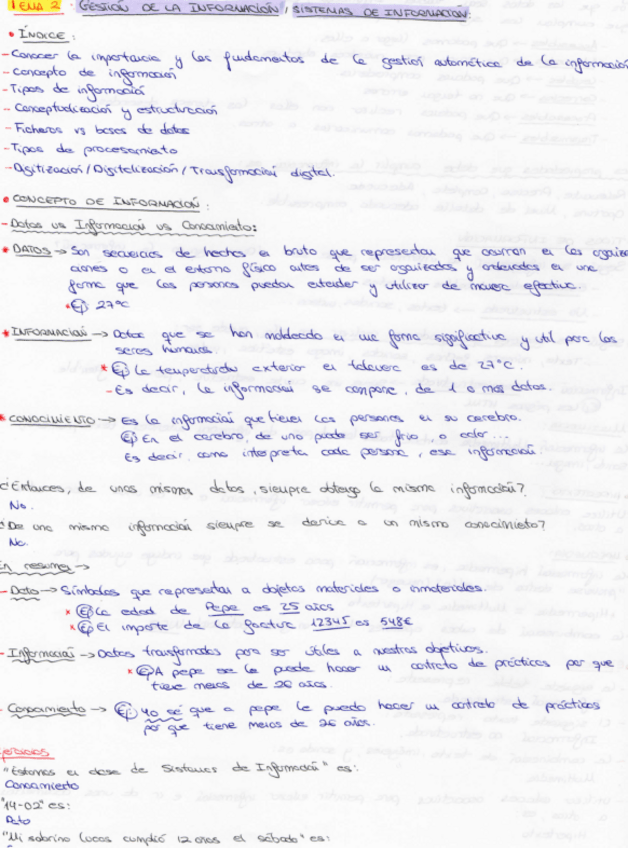 TEMA 2 : GESTIÓN DE LA INFORMACIÓN / SISTEMAS DE INFORMACIÓN:
• ÍNDICE:
- Conocer la importancia y los fundamentos de la gestión automática de la información
- Concepto de información
- Tipos de información
- Conceptualización y estructuración
- Ficheros vs bases de datos
- Tipos de procesamiento
- Digitización / Digitalización / Transformación digital.
• CONCEPTO DE INFORMACIÓN:
- Datos vs Información vs Conocimiento:
* DATOS → Son secuencias de hechos en bruto que representan que ocurren en las organiza
ciones o en el entorno físico antes de ser organizados y ordenados en una
forma que las personas puedan entender y utilizar de manera efectiva.
* Ej 27ºC
* INFORMACIÓN → Datos que se han moldeado en una forma significativa y util para los
seres humanos.
* Ej La temperatura exterior en talavera es de 27ºC.
- Es decir, la información se compone, de 1 o mas datos.
* CONOCIMIENTO → Es la información que tienen las personas en su cerebro.
Ej En el cerebro, de uno puede ser frio, o calor...
Es decir, como interpreta cada persona, esa información.
¿Entonces, de unos mismos datos, siempre obtengo la misma información?
No.
¿De una misma información siempre se deriva a un mismo conocimiento?
No.
En resumen →
- Dato → Símbolos que representan a objetos materiales o inmateriales.
* Ej La edad de Pepe es 25 años
* Ej El importe de la factura 12345 es 548€
- Información → Datos transformados para ser útiles a nuestros objetivos.
* Ej A pepe se le puede hacer un contrato de prácticas por que
tiene menos de 26 años.
- Conocimiento → Ej: yo sé que a pepe le puedo hacer un contrato de prácticas
por que tiene menos de 26 años.
Ejercicios
"Estamos en clase de Sistemas de Información" es:
Conocimiento
"14-02" es:
Dato
"Mi sobrino Lucas cumplió 12 años el sábado" es: